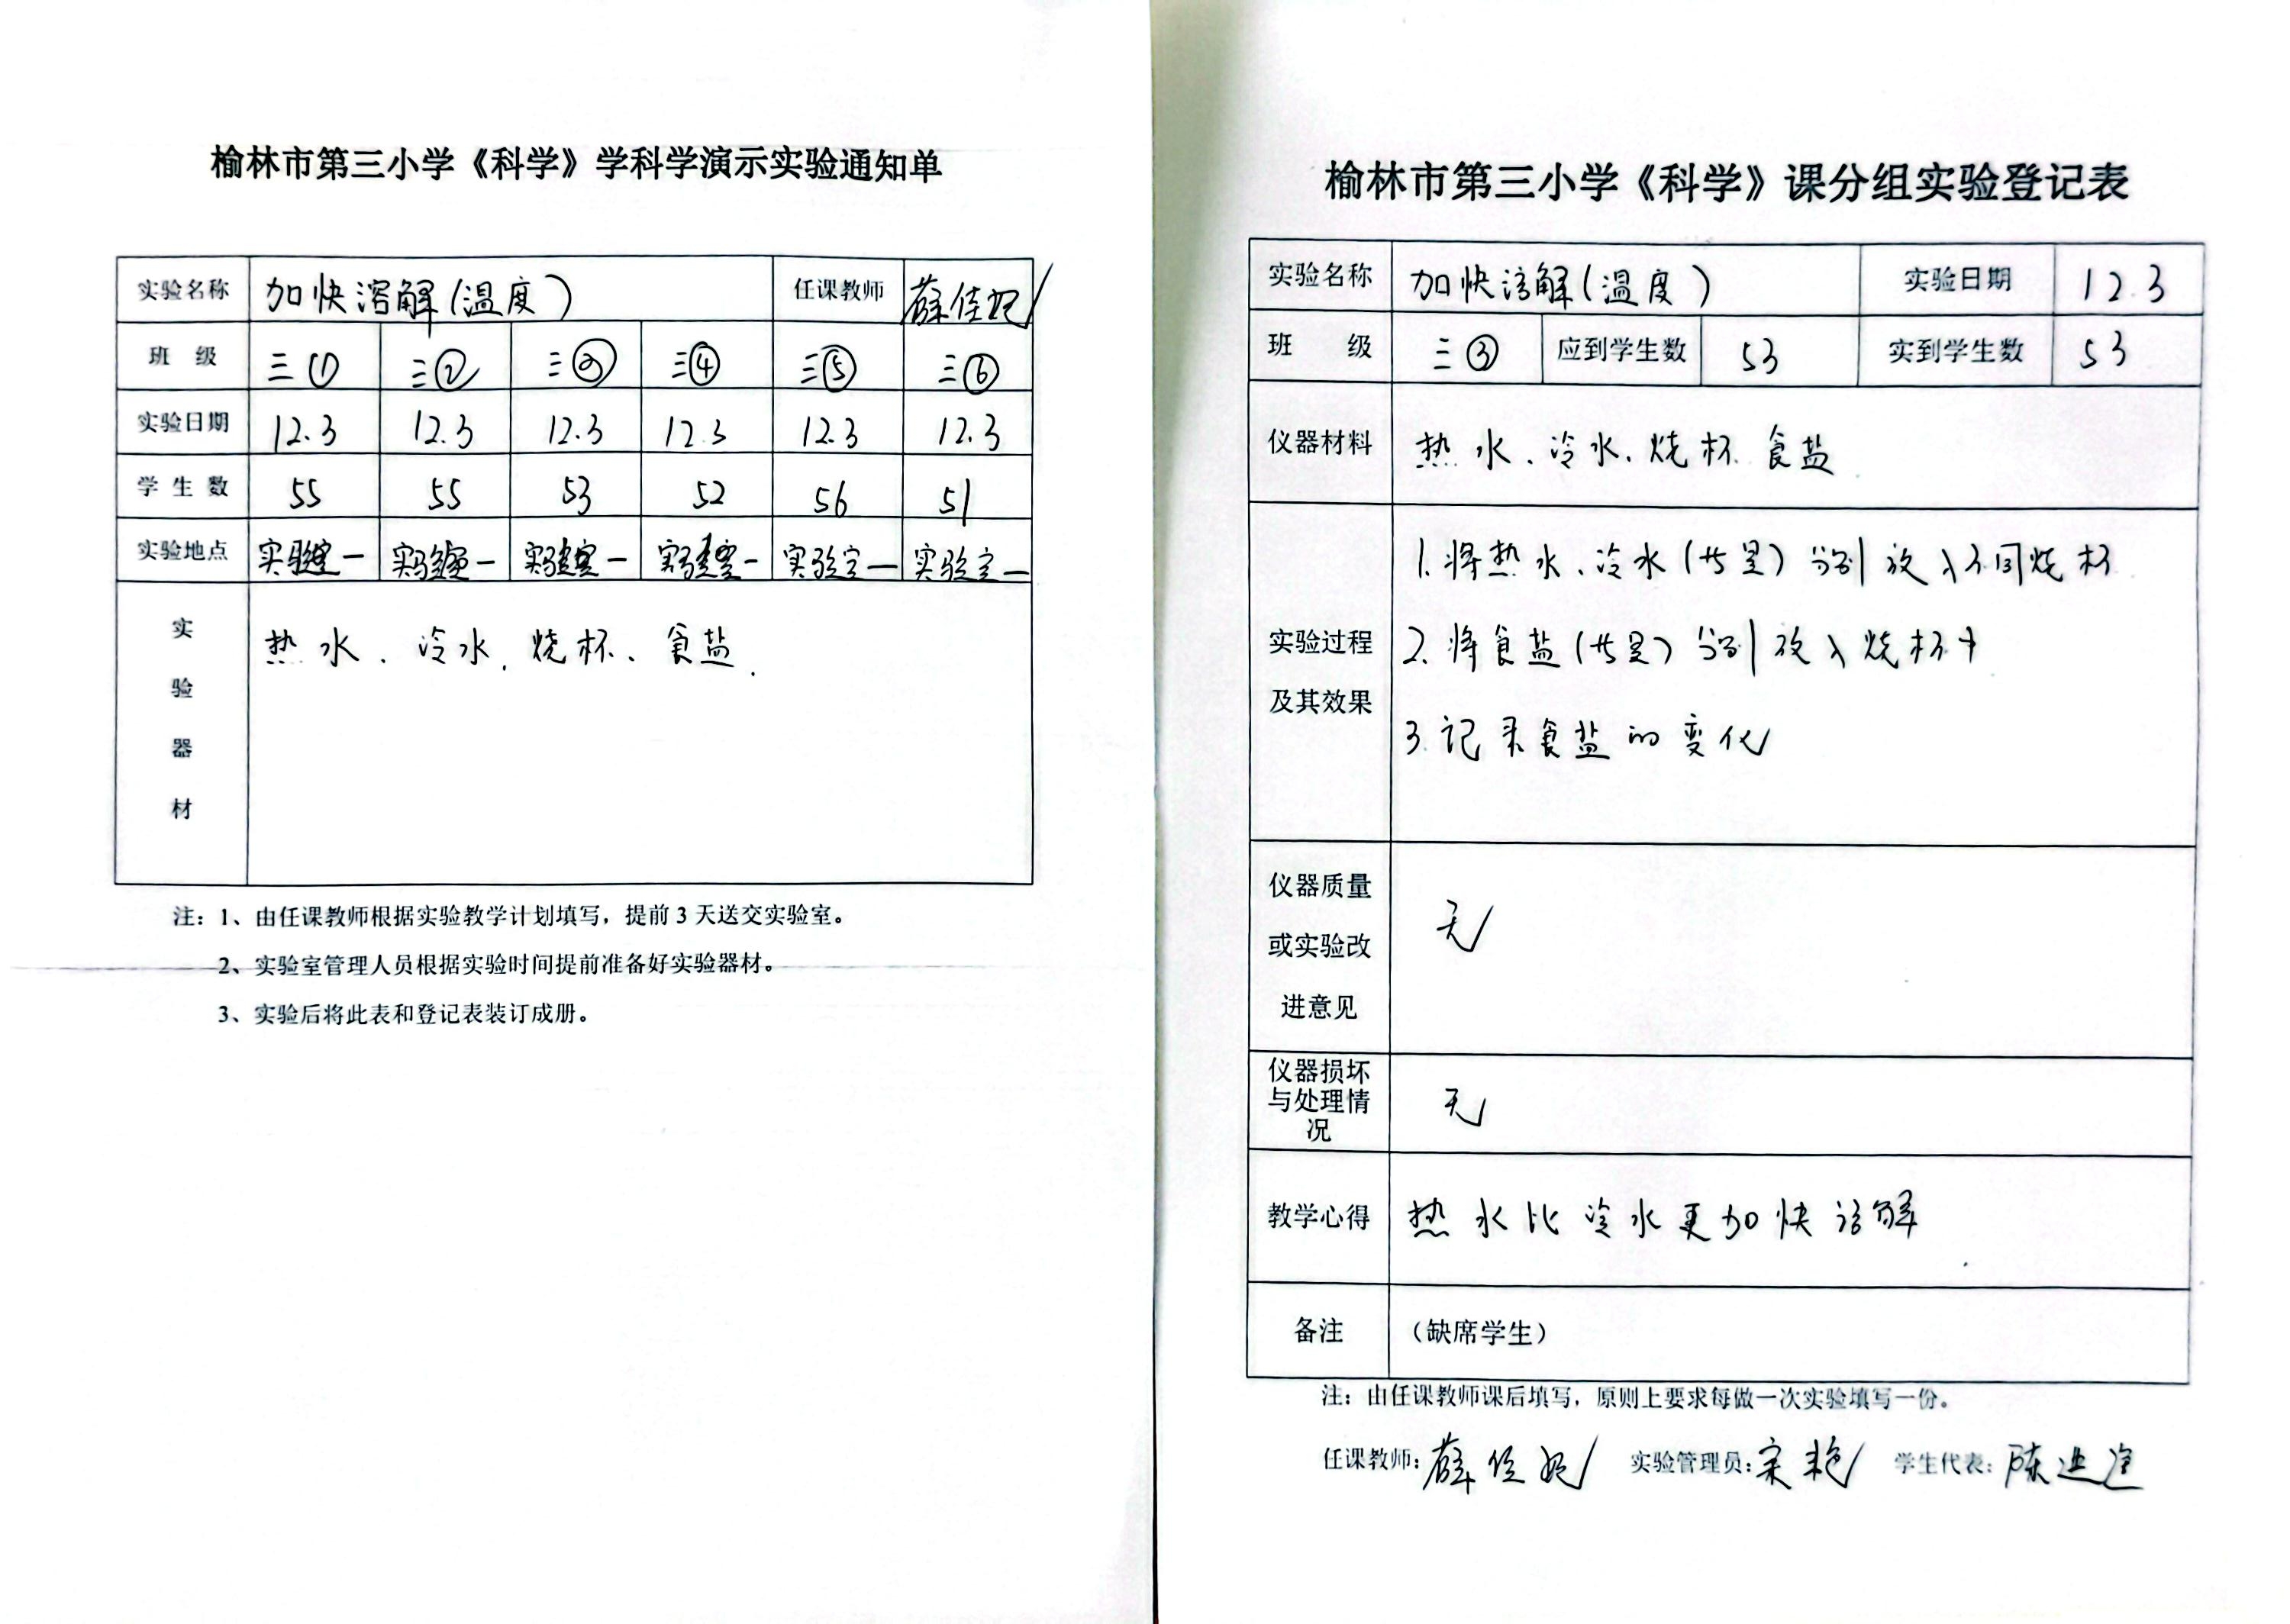 榆林市第三小学《科学》学科学演示实验通知单
实验名称 加快溶解(温度) 任课教师 薛佳妮
班 级 三① 三② 三③ 三④ 三⑤ 三⑥
实验日期 12.3 12.3 12.3 12.3 12.3 12.3
学 生 数 55 55 53 52 56 51
实验地点 实验室一 实验室一 实验室一 实验室一 实验室一 实验室一
实验器材 热水、冷水、烧杯、食盐.
注：1、由任课教师根据实验教学计划填写，提前3天送交实验室。
2、实验室管理人员根据实验时间提前准备好实验器材。
3、实验后将此表和登记表装订成册。
榆林市第三小学《科学》课分组实验登记表
实验名称 加快溶解(温度) 实验日期 12.3
班 级 三③ 应到学生数 53 实到学生数 53
仪器材料 热水、冷水、烧杯 食盐
实验过程
及其效果
1. 将热水、冷水(等量)分别放入不同烧杯
2. 将食盐(等量)分别放入烧杯中
3. 记录食盐的变化
仪器质量
或实验改
进意见
无
仪器损坏
与处理情
况
无
教学心得 热水比冷水更加快溶解
备注 （缺席学生）
注：由任课教师课后填写，原则上要求每做一次实验填写一份。
任课教师：薛佳妮 实验管理员：宋艳 学生代表：陈